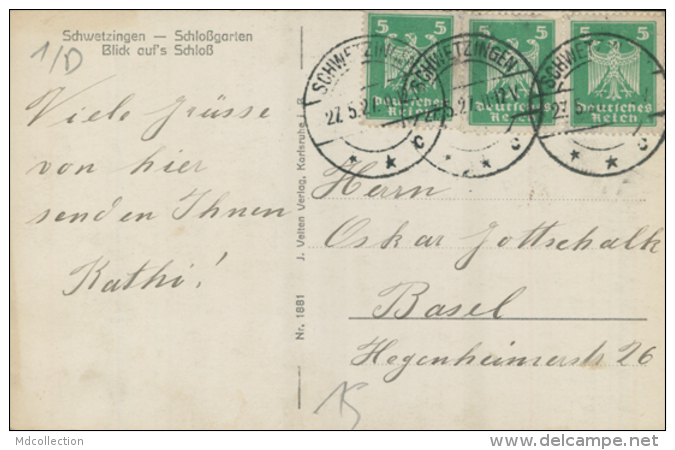 Schwetzingen — Schloßgarten
Blick auf's Schloß
1/D
Viele Grüsse
von hier
senden Ihnen
Kathi!
Nr. 1881 J. Velten Verlag, Karlsruhe i. B.
5 5
5 5
5 5
Deutsches
Reich
Deutsches
Reich
Deutsches
Reich
SCHWETZINGEN
27.5.27
c
SCHWETZINGEN
27.5.27
c
SCHWETZINGEN
c
Herrn
Oskar Gottschalk
Basel
Hegenheimerstr 26
15
Mdcollection
www.delcampe.net